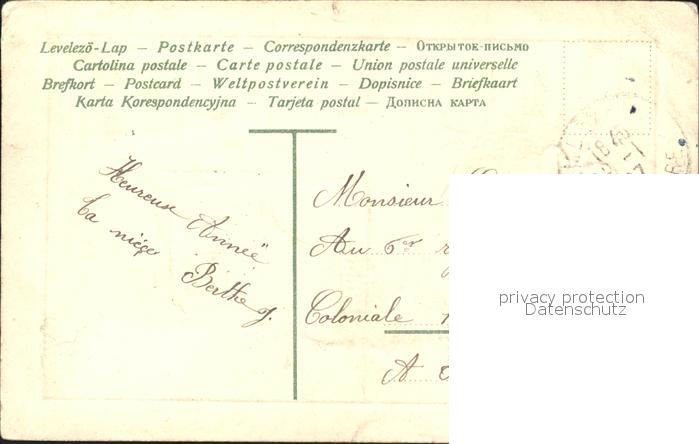 Levelező-Lap – Postkarte – Correspondenzkarte – Открытое-письмо
Cartolina postale – Carte postale – Union postale universelle
Brefkort – Postcard – Weltpostverein – Dopisnice – Briefkaart
Karta Korespondencyjna – Tarjeta postal – Дописна карта
Heureuse Année
Ta nièce
Berthe J.
Monsieur
Au 6er
Coloniale
A
privacy protection
Datenschutz